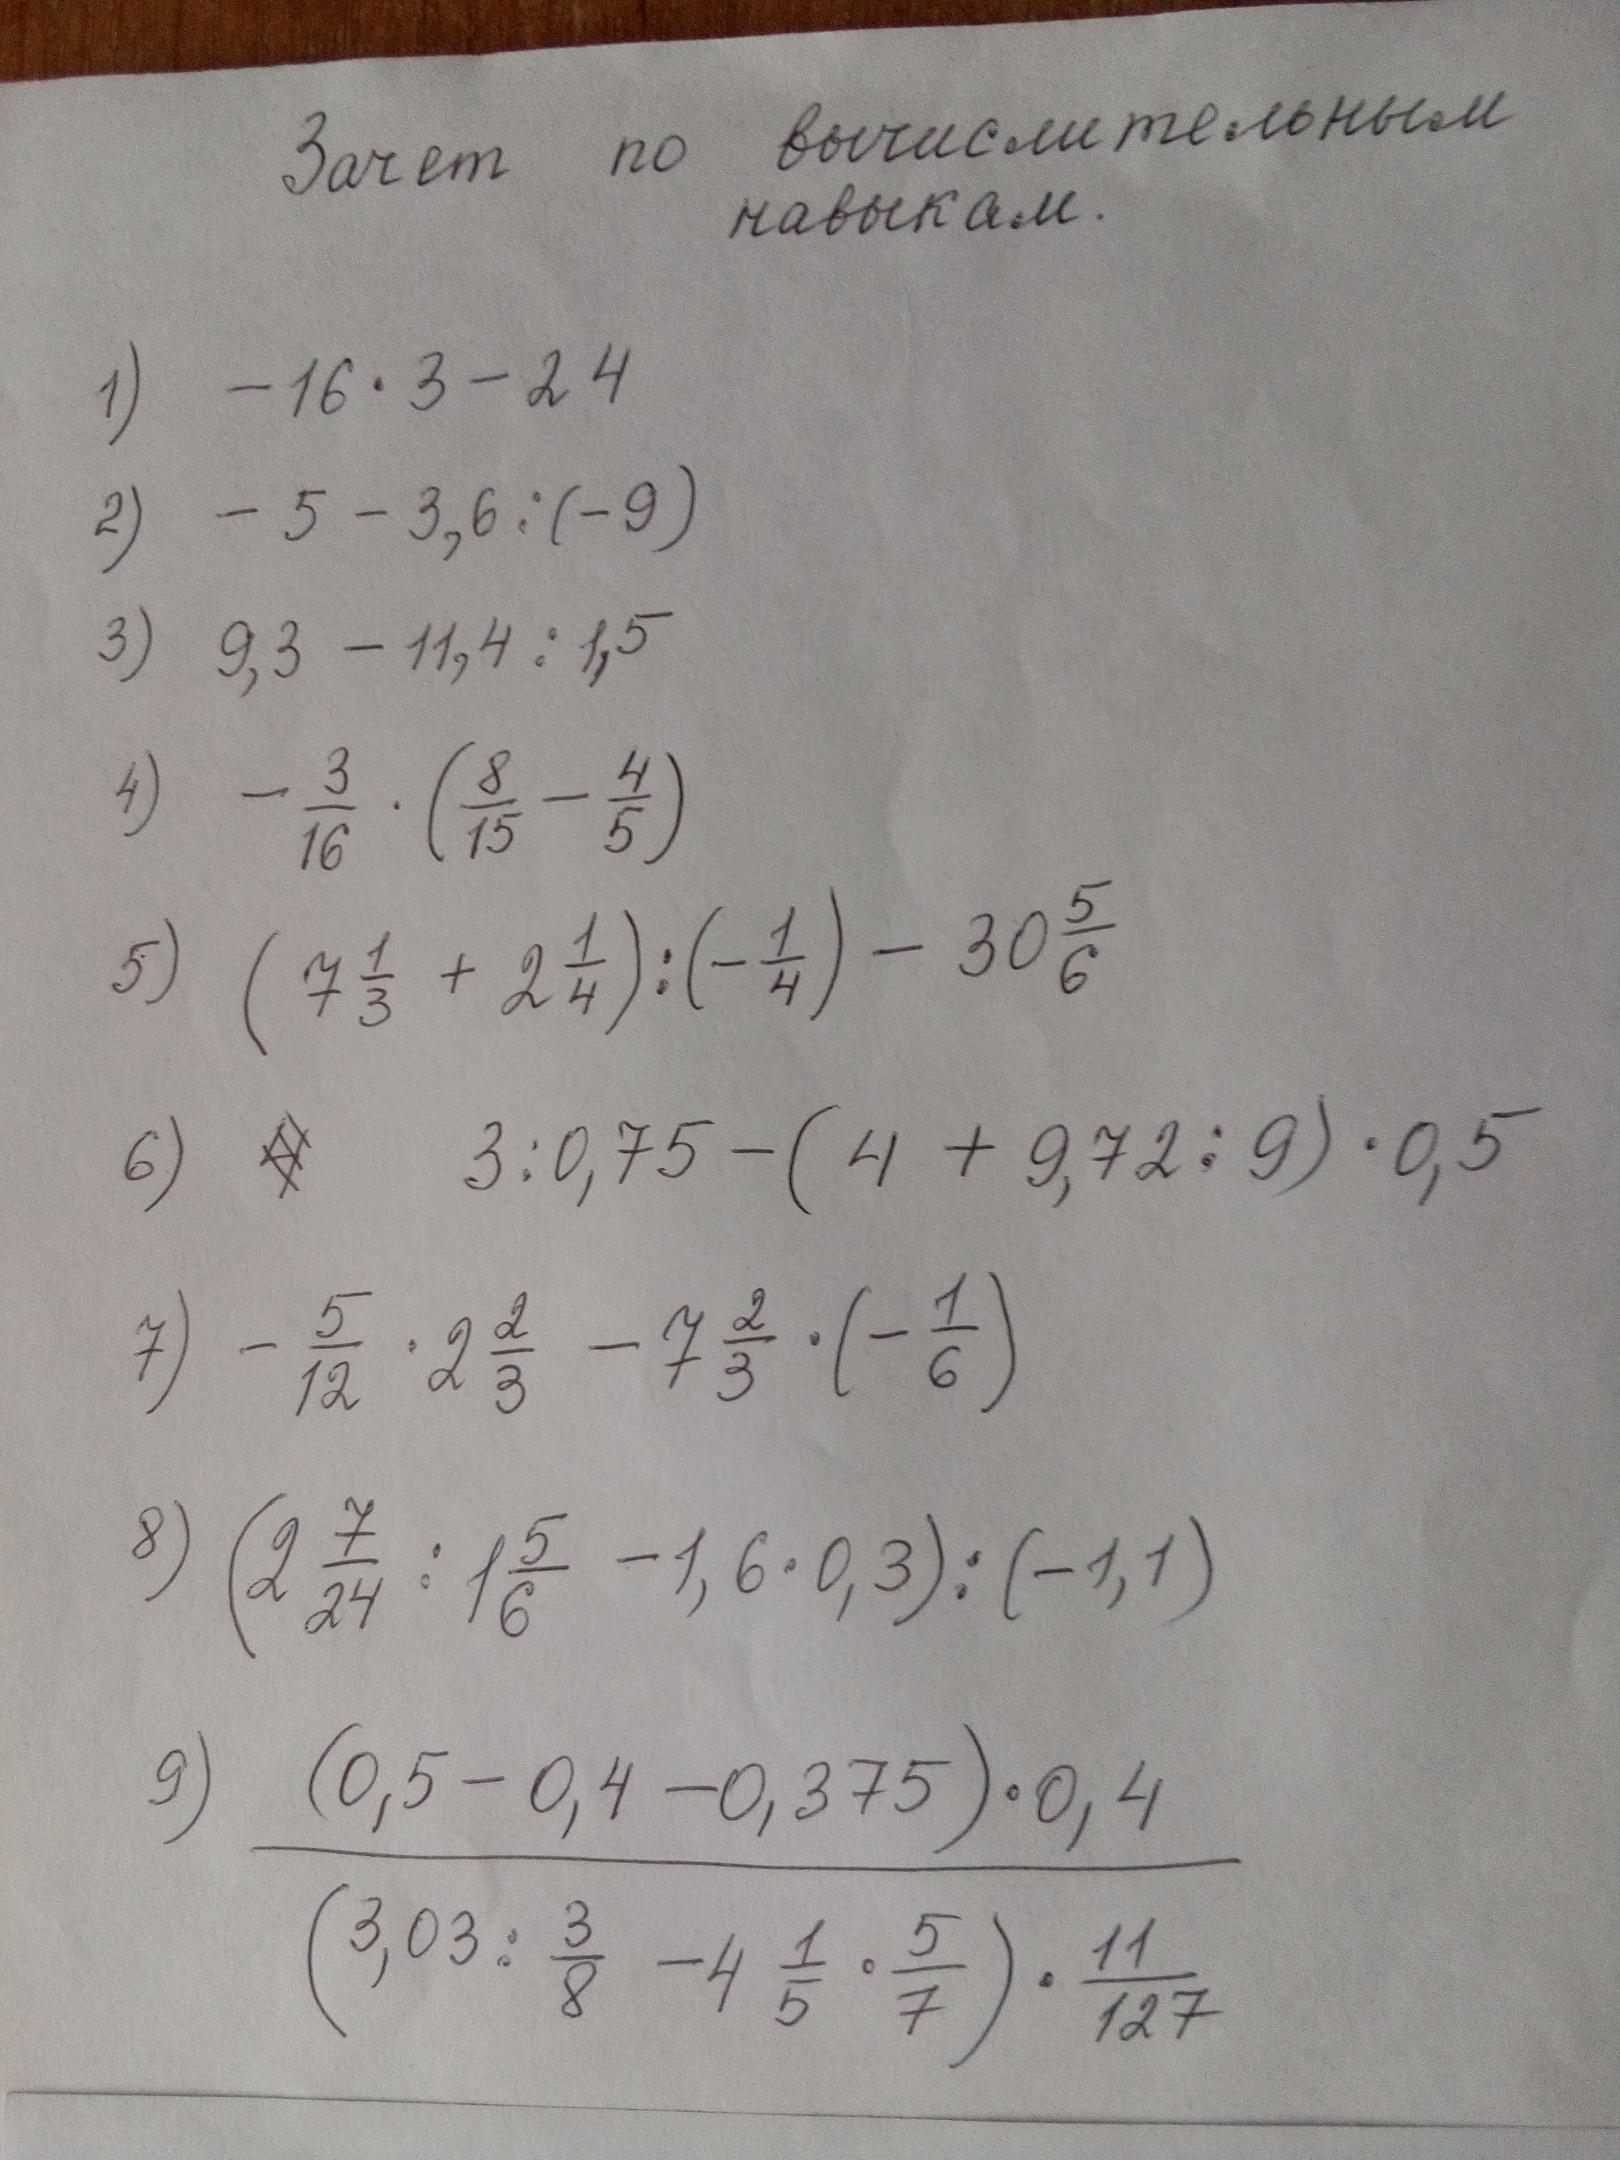 Зачет по вычислительным
навыкам.
1) -16·3-24
2) -5-3,6:(-9)
3) 9,3-11,4:1,5
4) -3/16·(8/15-4/5)
5) (7 1/3+2 1/4):(-1/4)-30 5/6
6) 3:0,75-(4+9,72:9)·0,5
7) -5/12·2 2/3-7 2/3·(-1/6)
8) (2 7/24:1 5/6-1,6·0,3):(-1,1)
9) (0,5-0,4-0,375)·0,4
(3,03:3/8-4 1/5·5/7)·11/127